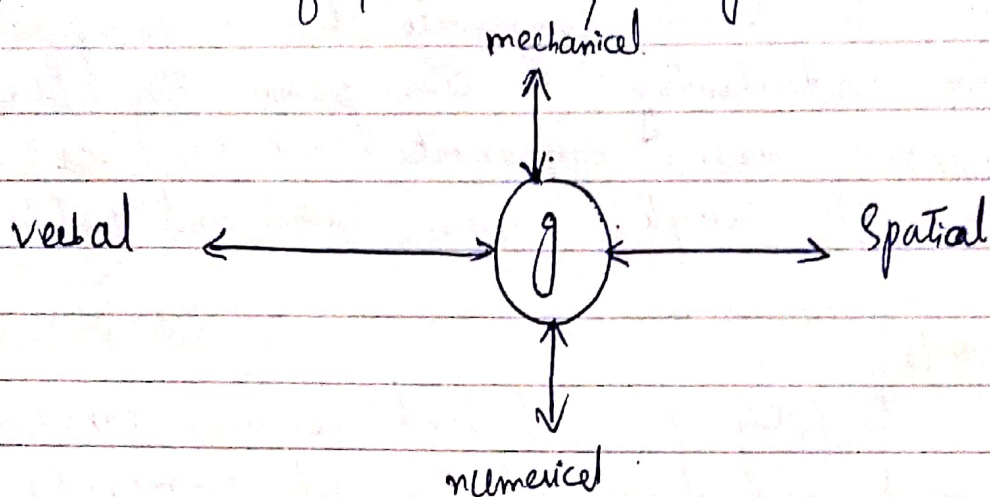 mechanical
verbal
g
Spatial
numerical